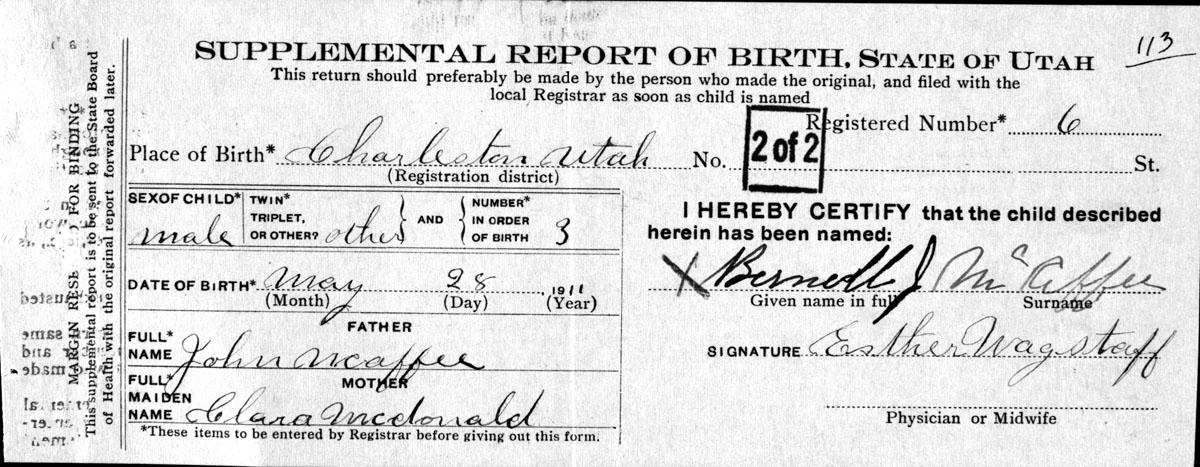 113
SUPPLEMENTAL REPORT OF BIRTH, STATE OF UTAH
This return should preferably be made by the person who made the original, and filed with the
local Registrar as soon as child is named
Registered Number* 6
2 of 2
Place of Birth* Charleston Utah No. St.
(Registration district)
SEX OF CHILD* male
TWIN* TRIPLET, OR OTHER? other
AND
NUMBER* IN ORDER OF BIRTH 3
DATE OF BIRTH* May 28, 1911
(Month) (Day) (Year)
FATHER
FULL* NAME John McAffee
MOTHER
FULL* MAIDEN NAME Clara Mcdonald
*These items to be entered by Registrar before giving out this form.
I HEREBY CERTIFY that the child described
herein has been named:
X Bernell J McAffee
Given name in full Surname
SIGNATURE Esther Wagstaff
Physician or Midwife
MARGIN RESE D FOR BINDING
This supplemental report is to be sent to the State Board
of Health with the original report forwarded later.